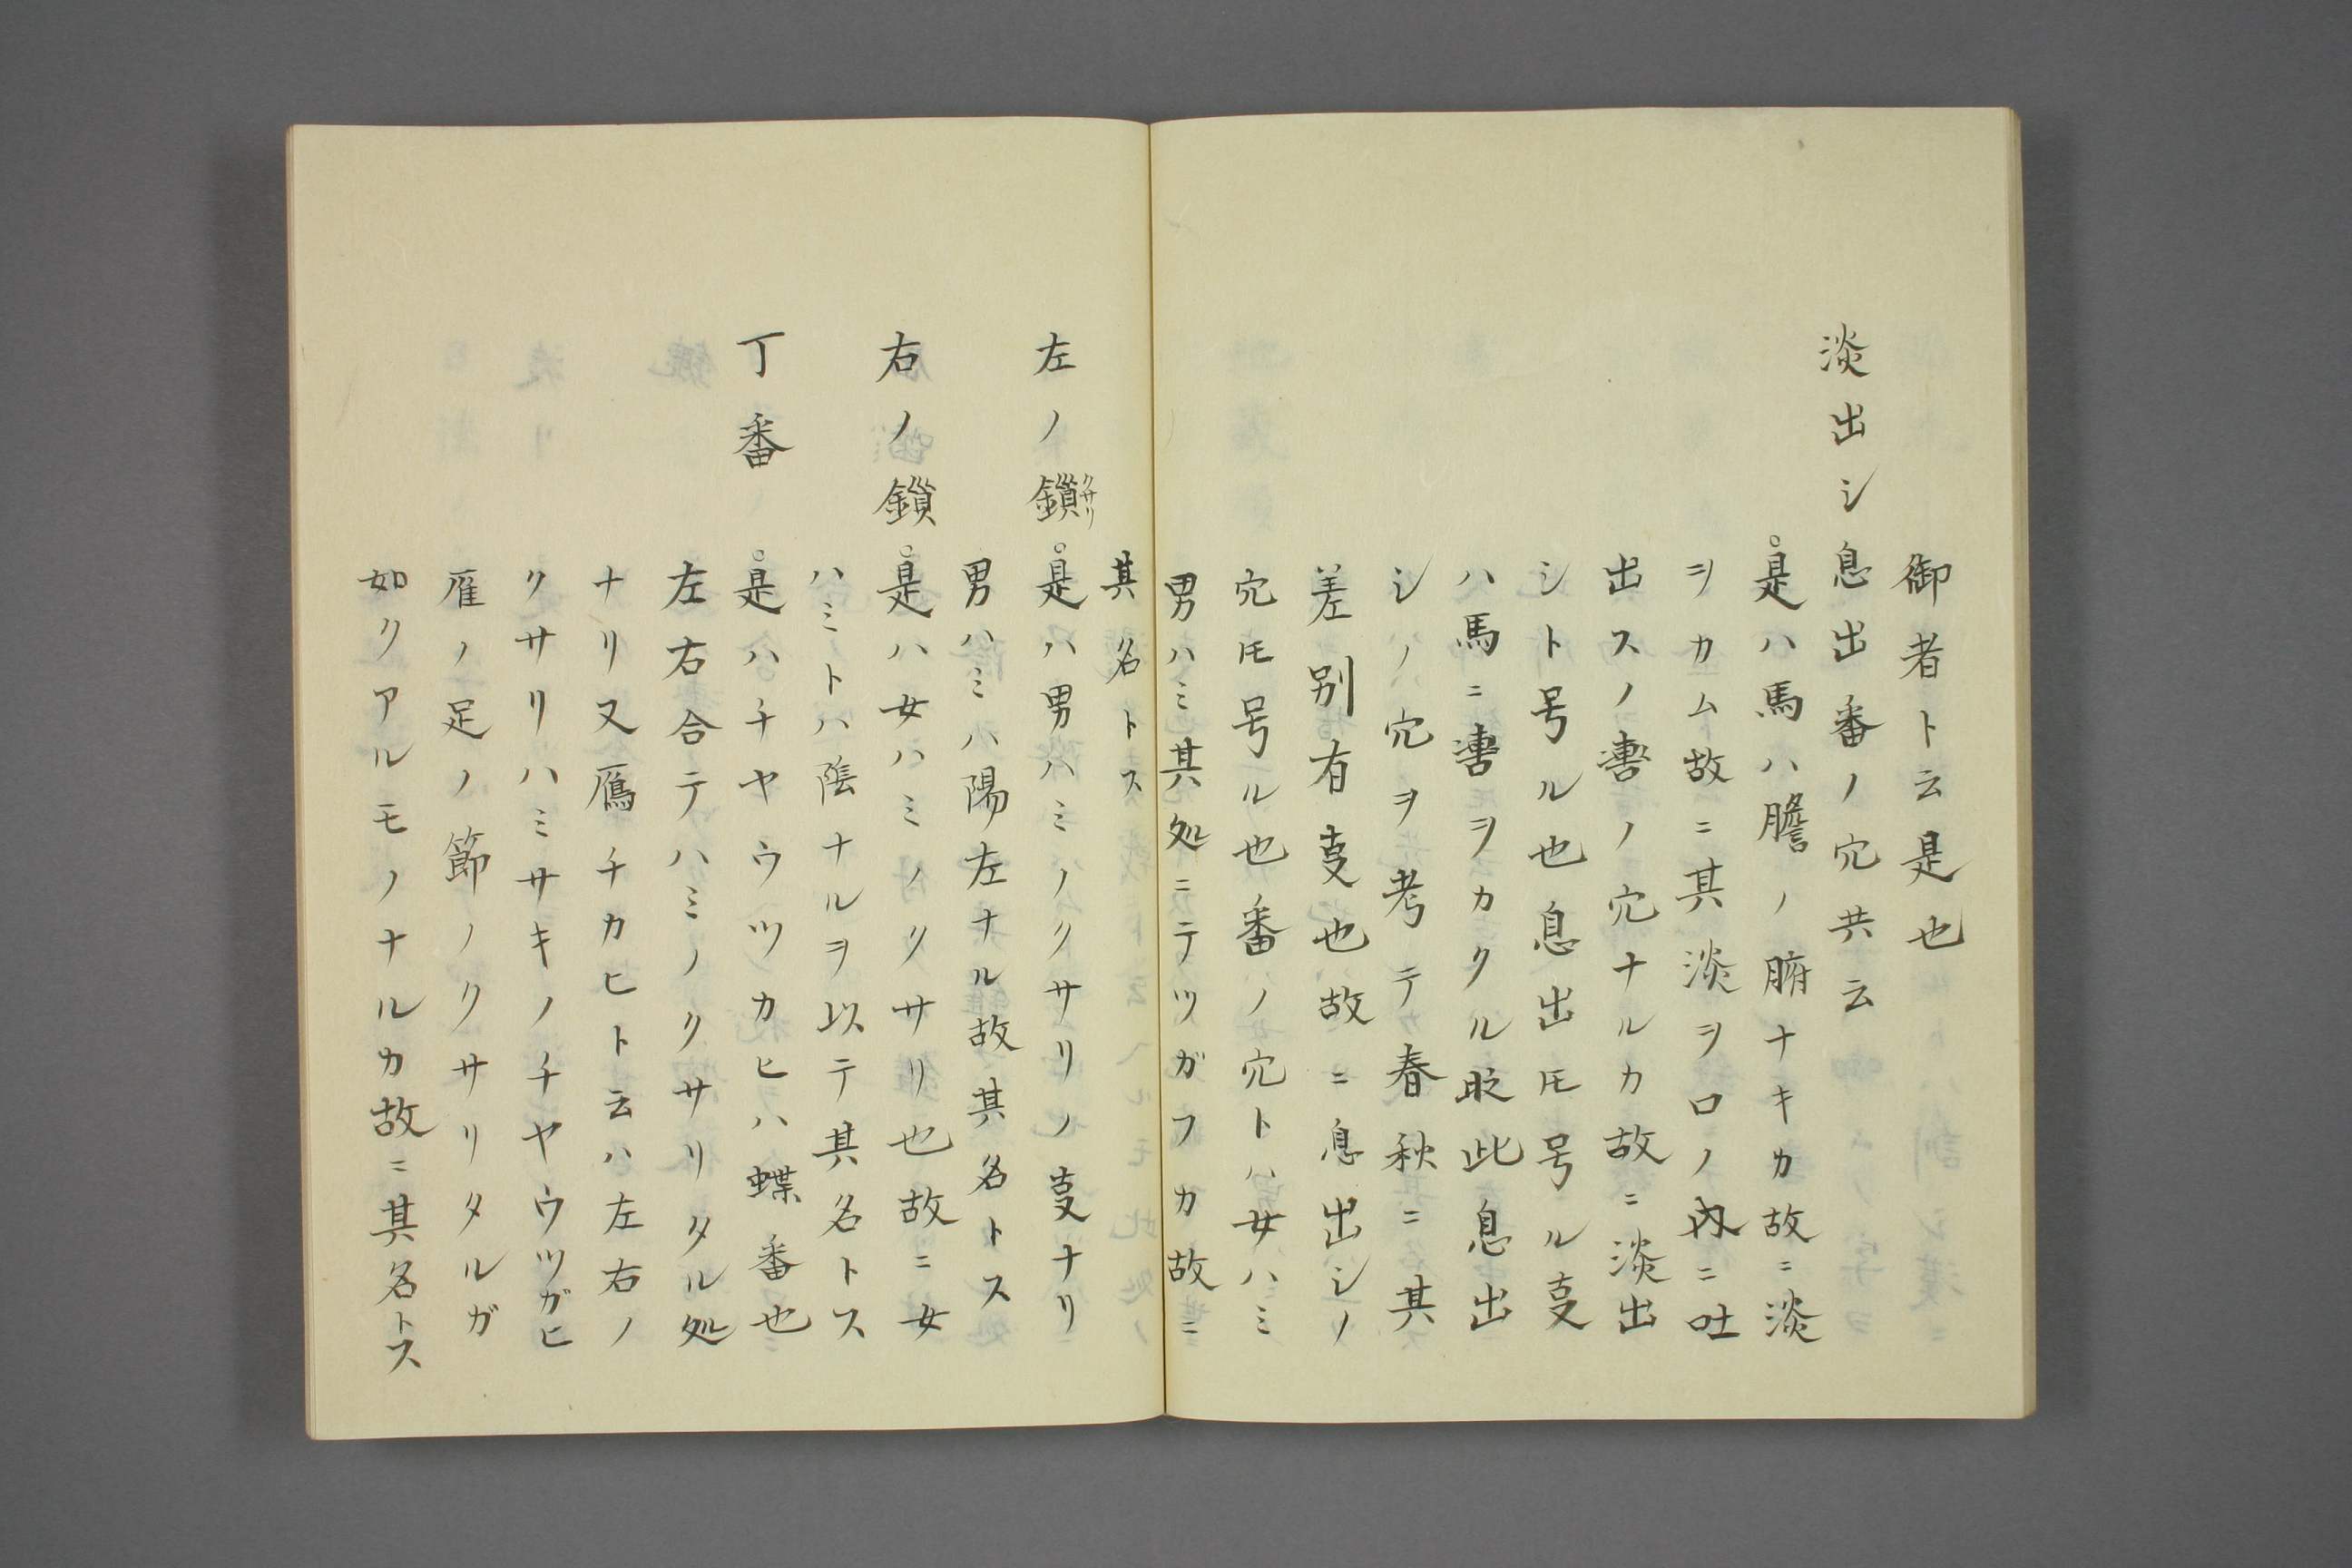 御者ト云是也
淡出シ息出番ノ穴共云
○是ハ馬ハ膽ノ腑ナキカ故ニ淡
ヲカム故ニ其淡ヲロノ内ニ吐
出スノ轡ノ穴ナルカ故ニ淡出
シト号ル也息出𪜈号ル㕝
ハ馬ニ轡ヲカクル時此息出
シノ穴ヲ考テ春秋ニ其
差別有㕝也故ニ息出シノ
穴𪜈号ル也番ノ穴トハ女ハミ
男ハミ其処ニテツガフカ故ニ
其名トス
左ノ鎻クサリ○是ハ男ハミノクサリノ㕝ナリ
男ハミハ陽左ナル故其名トス
右ノ鎻○是ハ女ハミノクサリ也故ニ女
ハミトハ陰ナルヲ以テ其名トス
丁番○是ハチヤウツカヒハ蝶番也
左右合テハミノクサリタル処
ナリ又鴈チカヒト云ハ左右ノ
クサリハミサキノチヤウツガヒ
雁ノ足ノ節ノクサリタルガ
如クアルモノナルカ故ニ其名トス